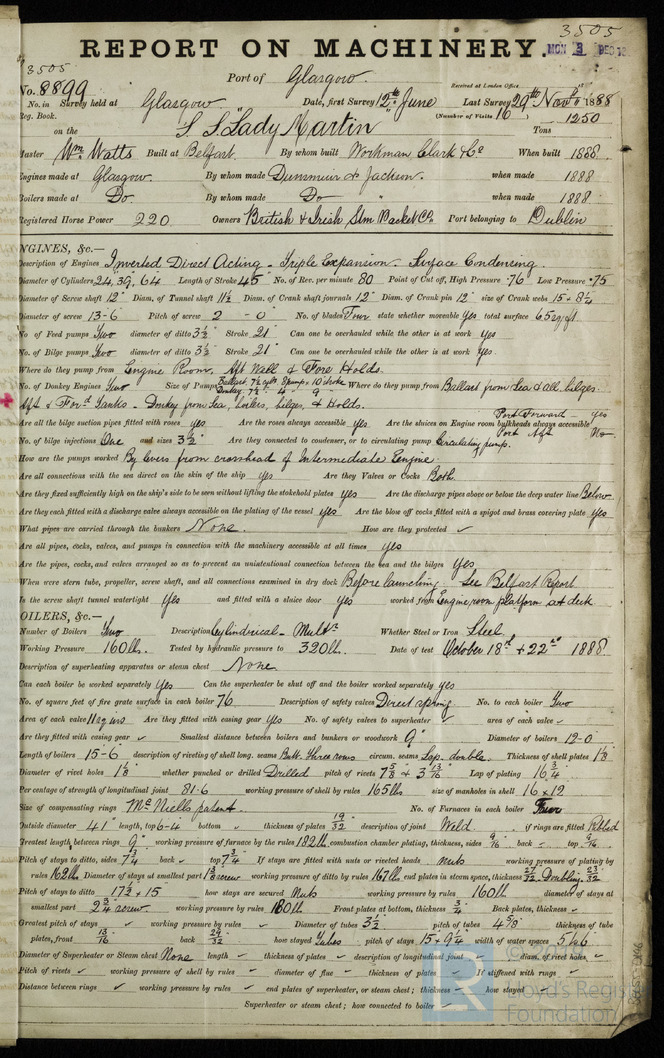 3505
REPORT ON MACHINERY.
MON 3 DEC 18
3505
No. 8899
Port of Glasgow
Received at London Office
No. in Survey held at Glasgow Date, first Survey 12th June Last Survey 29th Novr 1888
Reg. Book. (Number of Visits 16)
on the S S "Lady Martin" Tons 1250
Master Wm Watts Built at Belfast. By whom built Workman Clark & Co When built 1888.
Engines made at Glasgow. By whom made Dunsmuir & Jackson. when made 1888
Boilers made at Do. By whom made Do when made 1888
Registered Horse Power 220 Owners British & Irish Stm Packet Co. Port belonging to Dublin
ENGINES, &c.—
Description of Engines Inverted Direct Acting - Triple Expansion - Surface Condensing.
Diameter of Cylinders 24, 39, 64 Length of Stroke 45" No. of Rev. per minute 80 Point of Cut off, High Pressure .76" Low Pressure .75
Diameter of Screw shaft 12" Diam. of Tunnel shaft 11½ Diam. of Crank shaft journals 12" Diam. of Crank pin 12" size of Crank webs 15 x 8¼
Diameter of screw 13-6" Pitch of screw 2 - 0" No. of blades Four state whether moveable yes total surface 65 sq ft.
No. of Feed pumps Two diameter of ditto 3½" Stroke 21" Can one be overhauled while the other is at work yes
No. of Bilge pumps Two diameter of ditto 3½ Stroke 21" Can one be overhauled while the other is at work yes.
Where do they pump from Engine Room, Aft Well & Fore Holds.
No. of Donkey Engines Two Size of Pumps Ballast, 7½ cyls. 8 pump, 10 stroke Donkey 7½ " 4 " 9 " Where do they pump from Ballast from Sea & all bilges.
Aft & Ford Tanks - Donkey from Sea, boilers, bilges, & Holds.
Are all the bilge suction pipes fitted with roses yes Are the roses always accessible yes Are the sluices on Engine room bulkheads always accessible Port Forward - yes Port Aft No
No. of bilge injections One and sizes 3½" Are they connected to condenser, or to circulating pump Circulating pump.
How are the pumps worked By levers from crosshead of Intermediate Engine.
Are all connections with the sea direct on the skin of the ship yes Are they Valves or Cocks Both.
Are they fixed sufficiently high on the ship's side to be seen without lifting the stokehold plates yes Are the discharge pipes above or below the deep water line Below
Are they each fitted with a discharge valve always accessible on the plating of the vessel yes Are the blow off cocks fitted with a spigot and brass covering plate yes
What pipes are carried through the bunkers None. How are they protected ✓
Are all pipes, cocks, valves, and pumps in connection with the machinery accessible at all times yes
Are the pipes, cocks, and valves arranged so as to prevent an unintentional connection between the sea and the bilges yes
When were stern tube, propeller, screw shaft, and all connections examined in dry dock Before launching. See Belfast Report
Is the screw shaft tunnel watertight yes and fitted with a sluice door yes worked from Engine room platform at deck
BOILERS, &c.—
Number of Boilers Two Description Cylindrical - Multr Whether Steel or Iron Steel
Working Pressure 160 lb. Tested by hydraulic pressure to 320 lb. Date of test October 18th & 22nd 1888.
Description of superheating apparatus or steam chest None
Can each boiler be worked separately yes Can the superheater be shut off and the boiler worked separately yes
No. of square feet of fire grate surface in each boiler 76 Description of safety valves Direct spring No. to each boiler Two
Area of each valve 11 sq ins Are they fitted with easing gear yes No. of safety valves to superheater ✓ area of each valve ✓
Are they fitted with easing gear ✓ Smallest distance between boilers and bunkers or woodwork 9" Diameter of boilers 12-0
Length of boilers 15-6" description of riveting of shell long. seams Butt. three rows circum. seams Lap. double. Thickness of shell plates 1⅛
Diameter of rivet holes 1⅛ whether punched or drilled Drilled pitch of rivets 7⅝ & 3 13/16 Lap of plating 16¾
Per centage of strength of longitudinal joint 81.6 working pressure of shell by rules 165 lb size of manholes in shell 16 x 12
Size of compensating rings McNeills patent. No. of Furnaces in each boiler Four
Outside diameter 41" length, top 6-4 bottom " thickness of plates 19/32 description of joint Weld if rings are fitted Ribbed
Greatest length between rings 9" working pressure of furnace by the rules 182 lb combustion chamber plating, thickness, sides 9/16 back ✓ top 9/16
Pitch of stays to ditto, sides 7¼ back ✓ top 7¾ If stays are fitted with nuts or riveted heads nuts working pressure of plating by
rules 162 lb Diameter of stays at smallest part 1⅜ screw working pressure of ditto by rules 167 lb. end plates in steam space, thickness 27/32 Doubling 23/32
Pitch of stays to ditto 17½ x 15 how stays are secured Nuts working pressure by rules 160 lb diameter of stays at
smallest part 2¾ screw. working pressure by rules 180 lb Front plates at bottom, thickness ¾ Back plates, thickness ✓
Greatest pitch of stays ✓ working pressure by rules ✓ Diameter of tubes 3½ pitch of tubes 4⅝ thickness of tube
plates, front 13/16 back 29/32 how stayed Tubes pitch of stays 15 x 9¼ width of water spaces 5½ & 6
Diameter of Superheater or Steam chest None length ✓ thickness of plates ✓ description of longitudinal joint ✓ diam. of rivet holes ✓
Pitch of rivets ✓ working pressure of shell by rules ✓ diameter of flue ✓ thickness of plates ✓ If stiffened with rings ✓
Distance between rings ✓ working pressure by rules ✓ end plates of superheater, or steam chest; thickness ✓ how stayed ✓
Superheater or steam chest; how connected to boiler ✓
Lloyd's Register
Foundation